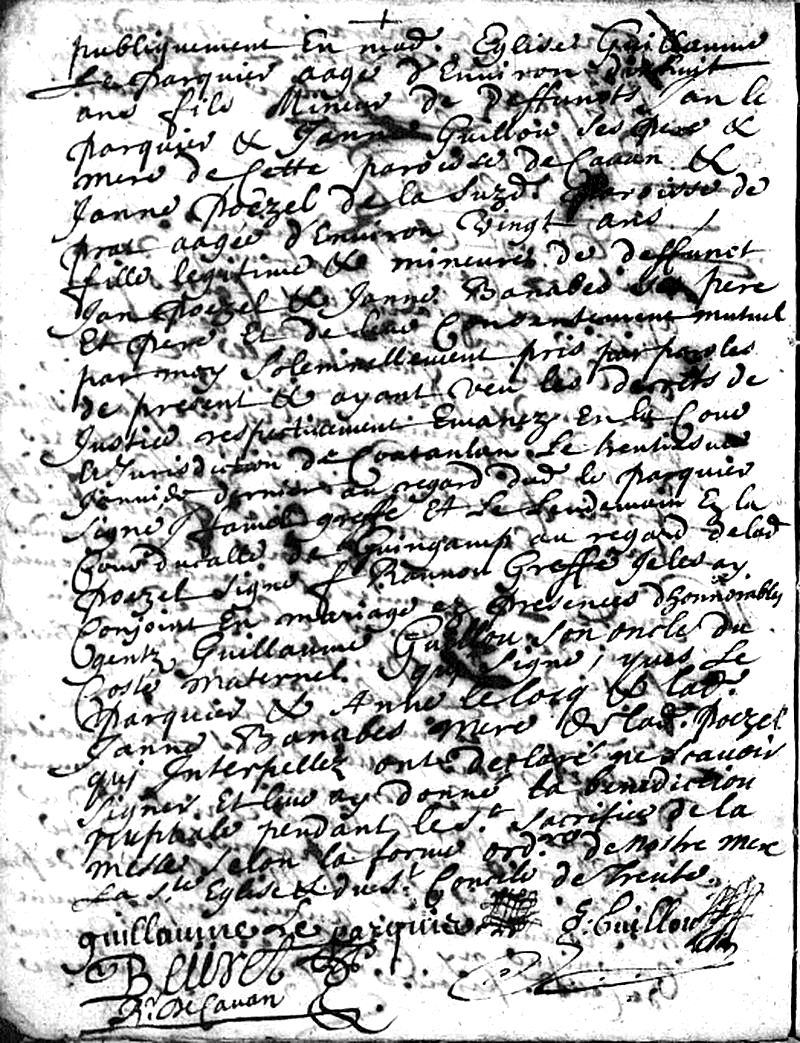 publiquement En mad. Eglise Guillaume
Le parquier aagé d'Environ dixhuit
ans fils Mineur de deffuncts Jan le
parquier & Janne Guillou ses pere &
mere de Cette paroisse de Cavan &
Janne poëzel de la suzd. paroisse de
prat aagée d'Environ Vingt ans
fille legitime & mineure de deffunct
Jan poezel & Janne Banabes pere
Et pere Et de leur Consentement mutuel
par moy solemnellement pris par paroles
de present & ayant veu les decrets de
Justice respectivement Emanez En la Cour
& Jurisdiction de Coatanlan Le trentiesme
Janvier dernier au regard dud. le parquier
signé greffe Et Le Lendemain En la
Cour ducalle de Guingamp au regard delad
poezel signé f Rannou Greffe Je les ay
Conjoint En mariage en presences d'honnorables
gentz Guillaume Guillou son oncle du
Costé maternel qui signe, yves Le
parquier & Anne le locq & lad.
Janne Banabes mere de lad. poezel
qui Interpellez ont declaré ne scavoir
signer Et leur ay donné la benediction
nuptiale pendant le st. sacrifice de la
messe selon la forme ord.re de nostre mere
La ste Eglise & du st. Concile de Trente.
guillaume Le parquier G: Guillou
Beuret
Rr. De Cavan